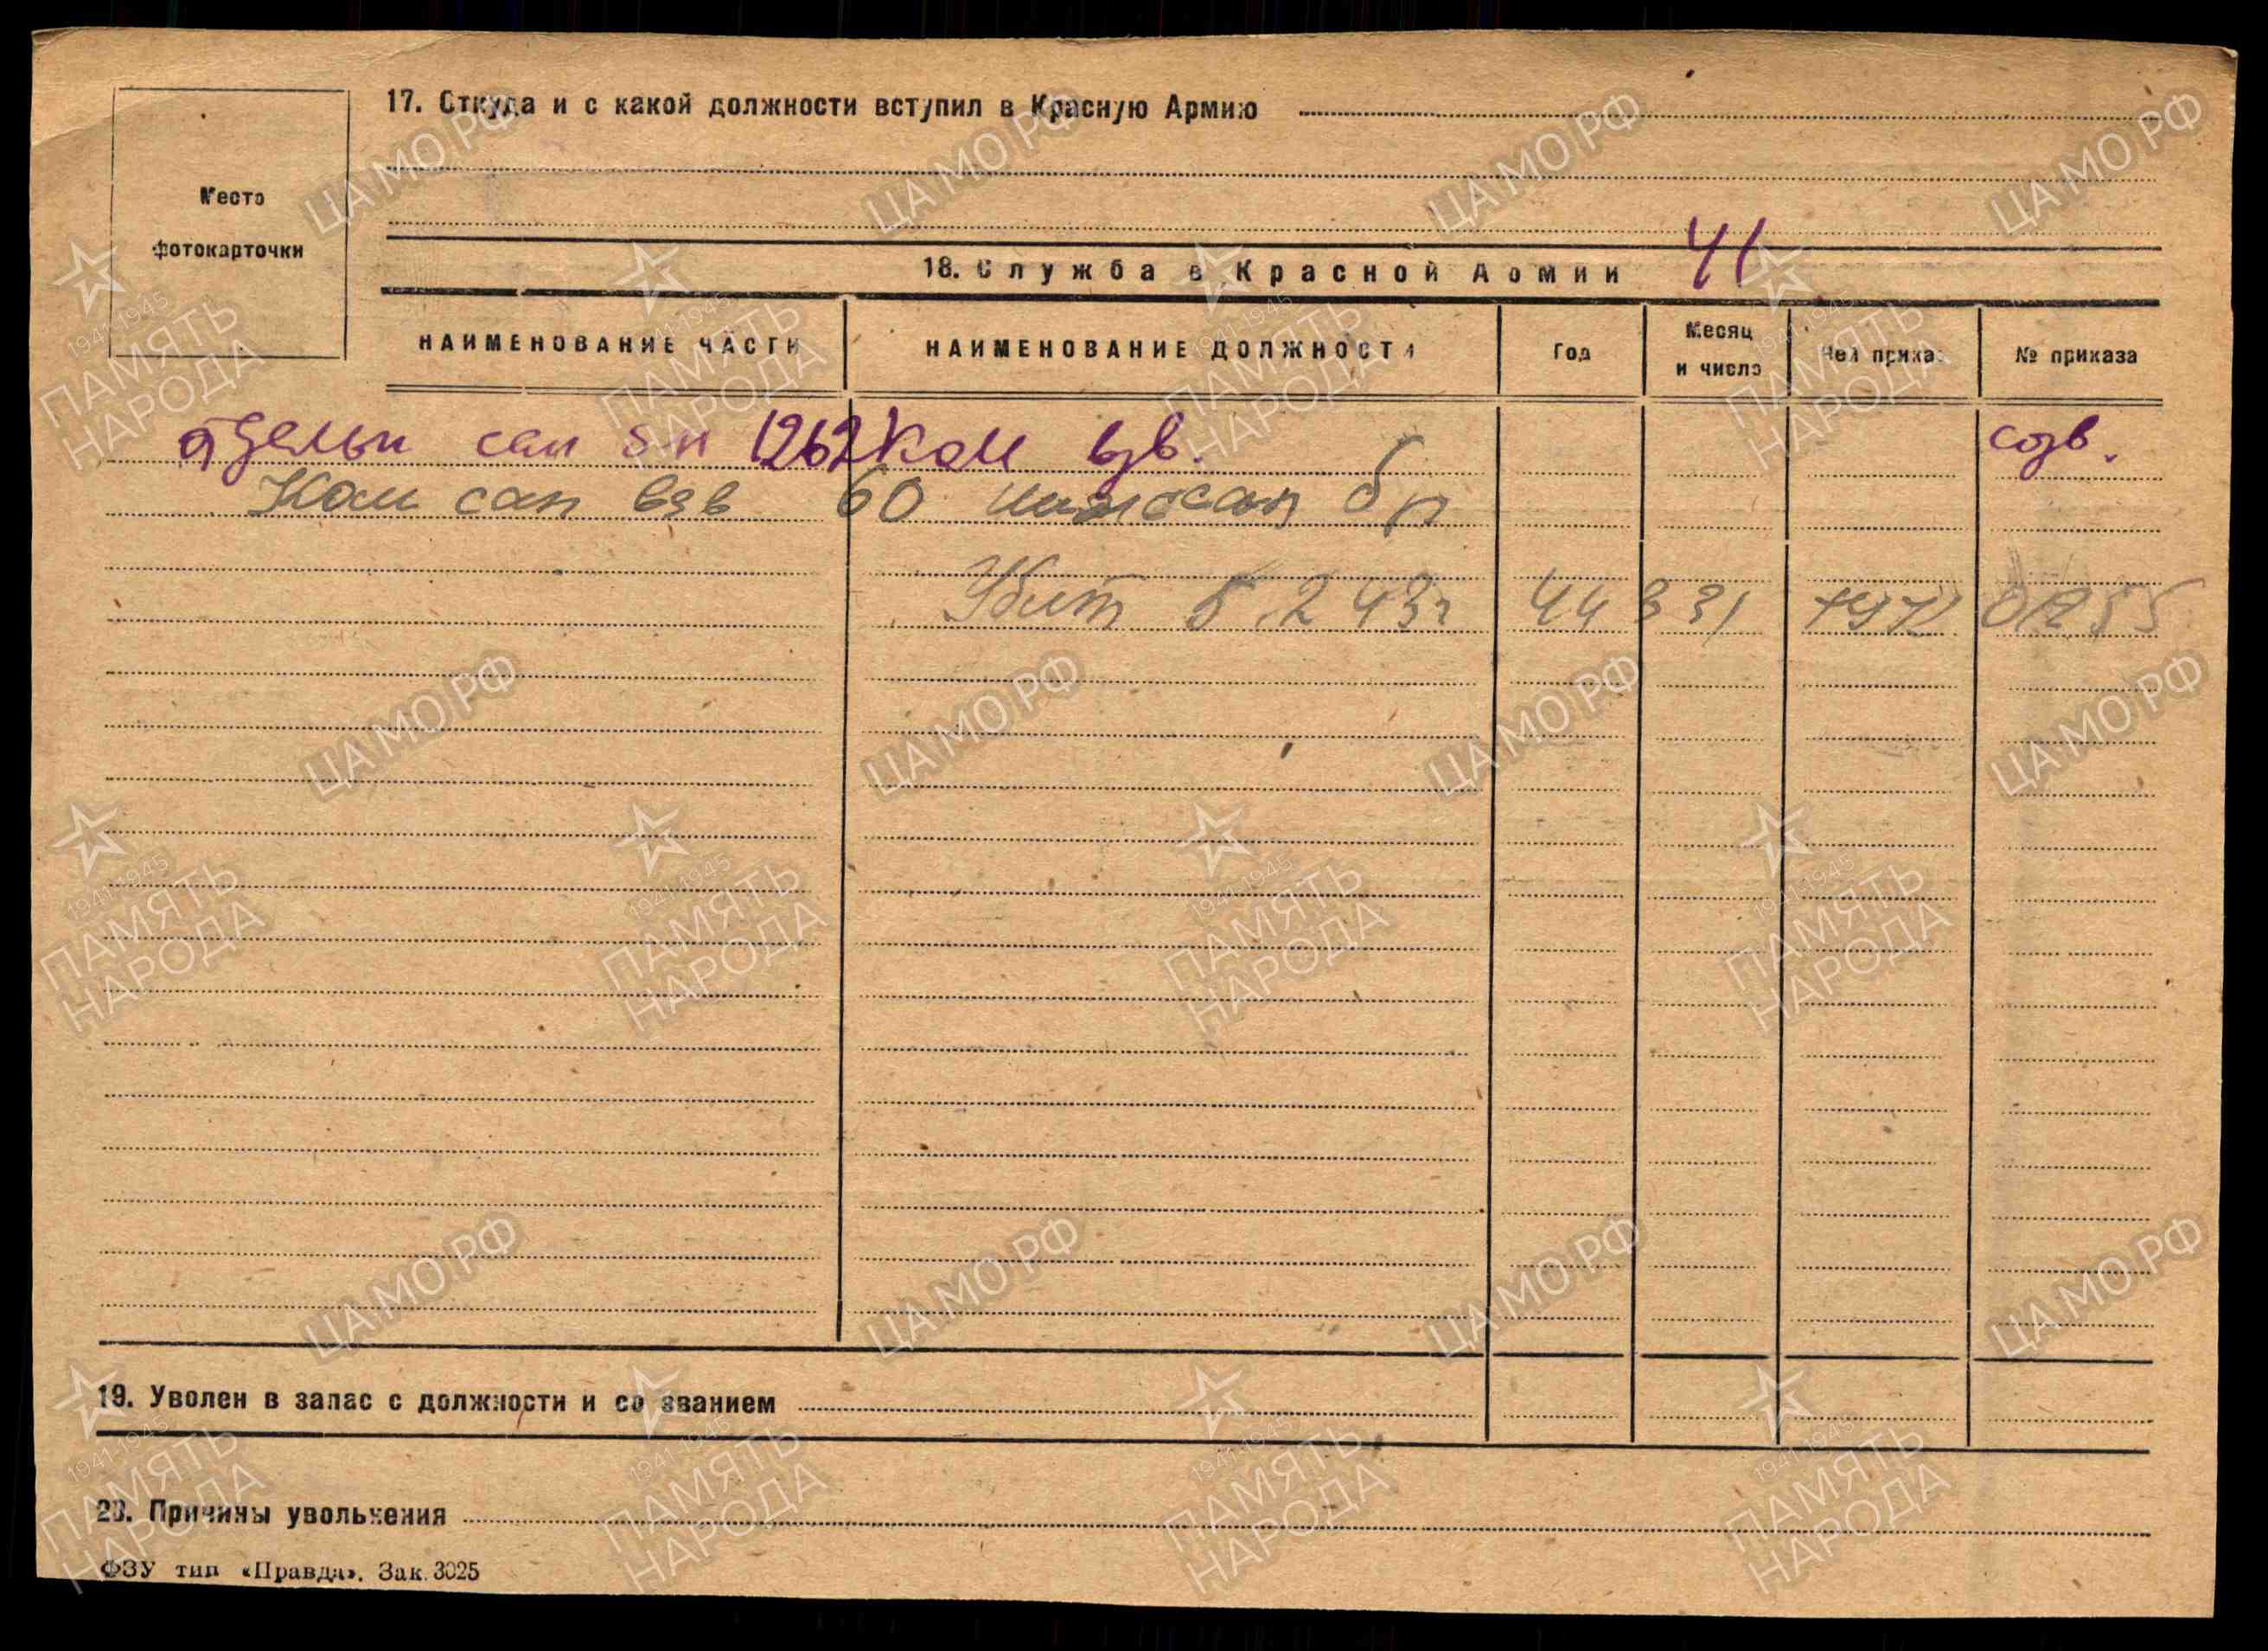 17. Откуда и с какой должности вступил в Красную Армию
Место
фотокарточки
41
18. Служба в Красной Армии
НАИМЕНОВАНИЕ ЧАСТИ НАИМЕНОВАНИЕ ДОЛЖНОСТИ Год Месяц и число Чей приказ № приказа
отдельн сап б-н 1262 Ком взв. созв.
Ком сап взв 60 инж сап бр
Убит 5.2 43г 44 3 31 0255
19. Уволен в запас с должности и со званием
20. Причины увольнения
ФЗУ тип «Правда». Зак. 3025
ЦАМО.РФ
1941-1945
ПАМЯТЬ
НАРОДА